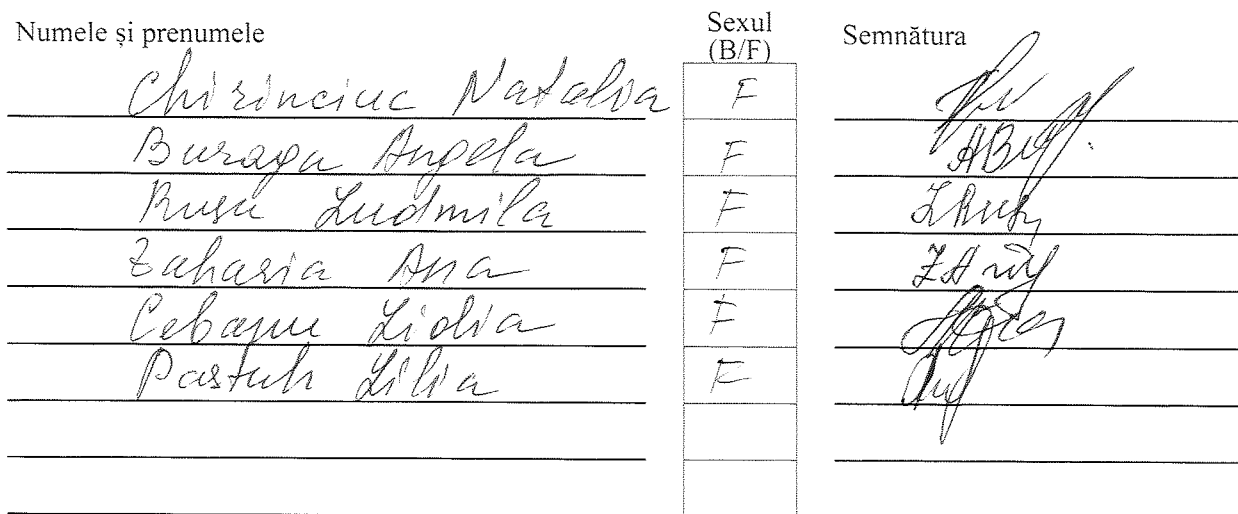 Numele și prenumele Sexul (B/F) Semnătura
Chirinciuc Natalia F
Buraga Angela F
Rusu Ludmila F
Zaharia Ana F
Lidia F
Pastuh Lilia F